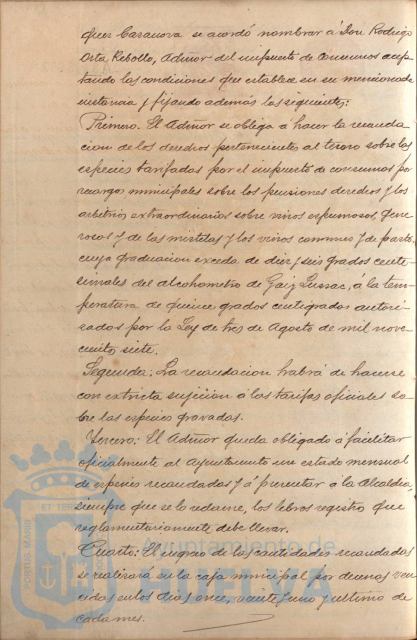 ques Casanova se acordó nombrar á Don Rodrigo
Orta Rebollo, Admor del impuesto de Consumos acep-
tando las condiciones que establece en su mencionada
instancia y fijando además las siguientes:
Primero. El Admor se obliga á hacer la recauda
cion de los derechos pertenecientes al tesoro sobre las
especies tarifadas por el impuesto de consumos por
recargos municipales sobre los pensiones derechos y los
arbitrios extraordinarios sobre vinos espumosos, gene
rosos y de las mistelas y los vinos comunes y de pasto
cuya graduacion exceda de diez y seis grados cente-
simales del alcohometro de Gaiz Lussac, a la tem-
peratura de quince grados centigrados autori-
zados por la Ley de tres de Agosto de mil nove-
ciento siete.
Segunda: La recaudacion habrá de hacerse
con extricta sujicion á las tarifas oficiales so-
bre las especies gravadas.
Tercero: El Admor queda obligado á facilitar
oficialmente al Ayuntamiento un estado mensual
de especies recaudadas y á presentar á la Alcaldia,
siempre que se lo reclame, los libros registro que
reglamentariamente debe llevar.
Cuarto: El ingreso de las cantidades recaudadas
se realizara en la caja municipal por decenas ven
cidas en los dias once, veinte y uno y ultimo de
cada mes.
PORTUS MARIS ET TERRAE
Ayuntamiento de
HUELVA